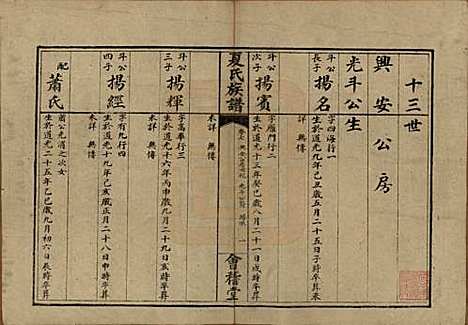 十三世
興安公房
光斗公生
斗公長子 揚名 字四海行一
生於道光九年己丑歲五月二十五日子時卒葬未詳無傳
斗公次子 揚賓 字雁門行二
生於道光十三年癸巳歲八月二十一日戌時卒葬未詳無傳
夏氏族譜
會稽堂
斗公三子 揚輝 字高華行三
生於道光十六年丙申歲九月二十九日亥時卒葬未詳無傳
斗公四子 揚經 字有九行四
生於道光十九年己亥歲正月二十八日申時卒葬
配 蕭氏 蕭公消之次女
生於道光二十五年乙巳歲九月初六日辰時卒葬